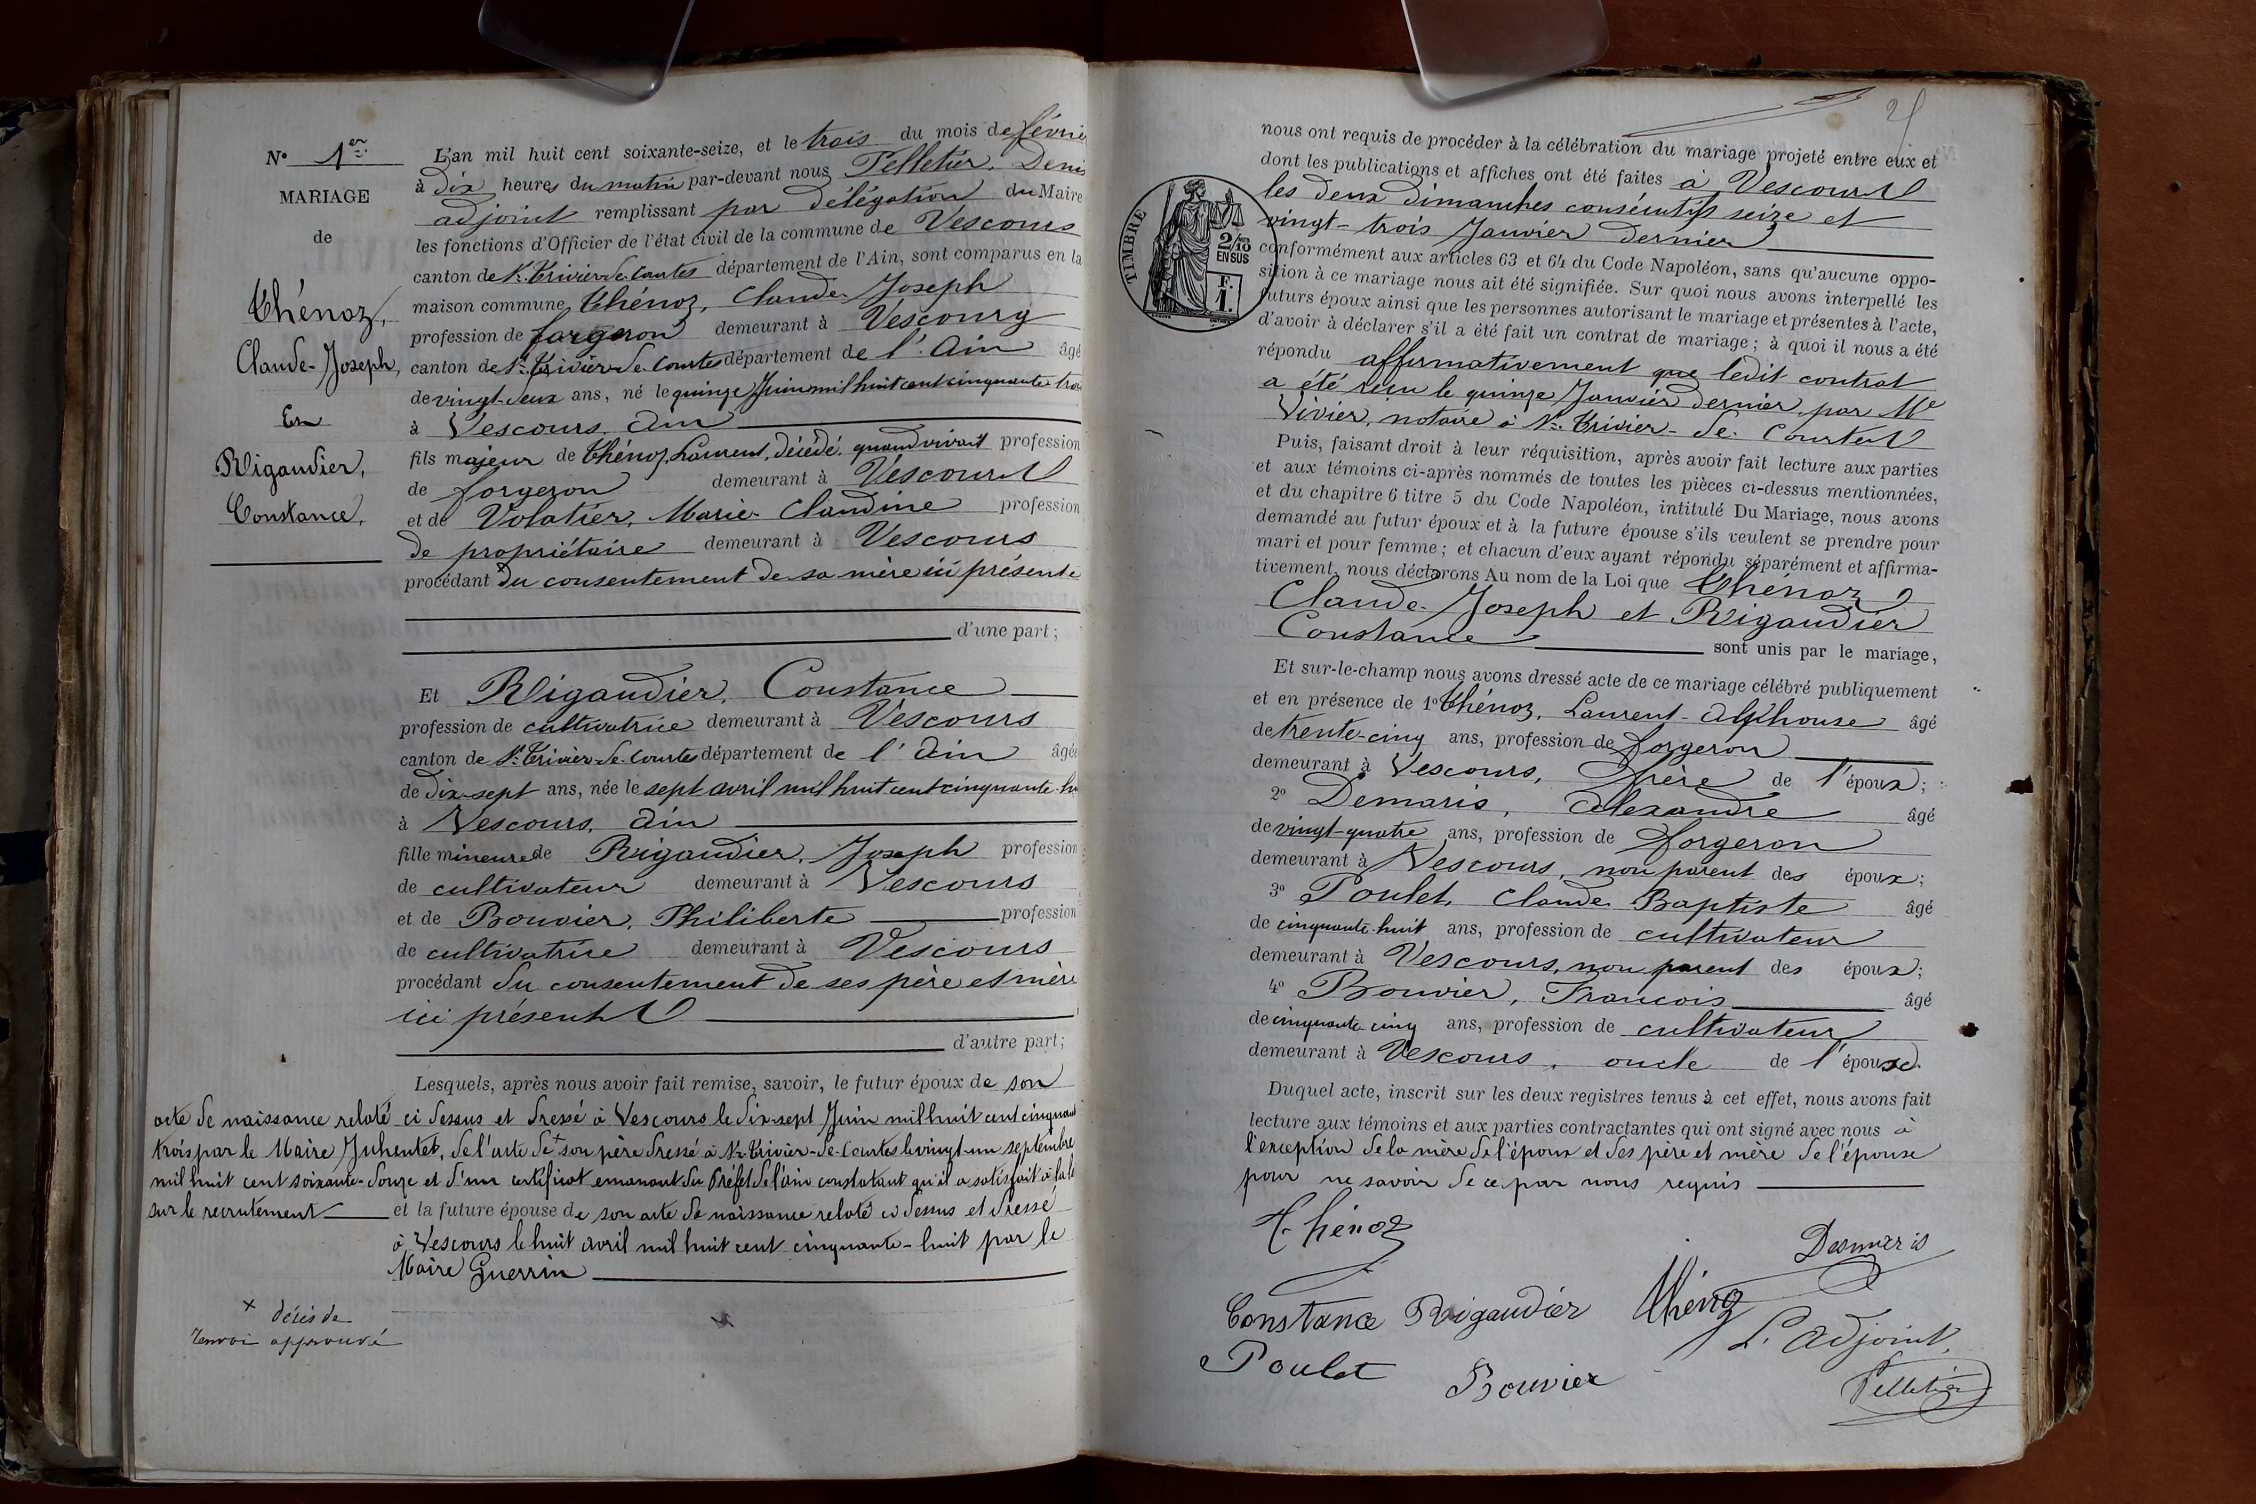 N° 1er
MARIAGE
de
Thénoz,
Claude-Joseph,
En
Rigaudier,
Constance,
L'an mil huit cent soixante-seize, et le trois du mois de févrie
à dix heures du matin par-devant nous Pelletier, Denis
adjoint remplissant par délégation du Maire
les fonctions d'Officier de l'état civil de la commune de Vescours
canton de St. Trivier-de-Courtes département de l'Ain, sont comparus en la
maison commune Thénoz, Claude-Joseph
profession de forgeron demeurant à Vescours
canton de St. Trivier-de-Courtes département de l'Ain âgé
de vingt-deux ans, né le quinze Juin mil huit cent cinquante-trois
à Vescours, Ain
fils majeur de Thénoz, Laurent, décédé, quand vivait profession
de forgeron demeurant à Vescours
et de Volatier, Marie-Claudine profession
de propriétaire demeurant à Vescours
procédant du consentement de sa mère ici présente
d'une part;
Et Rigaudier, Constance
profession de cultivatrice demeurant à Vescours
canton de St. Trivier-de-Courtes département de l'Ain âgée
de dix-sept ans, née le sept avril mil huit cent cinquante-hu
à Vescours, Ain
fille mineure de Rigaudier, Joseph profession
de cultivateur demeurant à Vescours
et de Bouvier, Philiberte profession
de cultivatrice demeurant à Vescours
procédant du consentement de ses père et mère
ici présents
d'autre part;
Lesquels, après nous avoir fait remise, savoir, le futur époux de son
acte de naissance relaté ci dessus et dressé à Vescours le dix-sept Juin mil huit cent cinquante
trois par le Maire Juhentet, de l'acte de + son père dressé à St. Trivier-de-Courtes le vingt-un septembre
mil huit cent soixante-douze et d'un certificat emanant du Préfet de l'Ain constatant qu'il a satisfait à la loi
sur le recrutement et la future épouse de son acte de naissance relaté ci dessus et dressé
à Vescours le huit avril mil huit cent cinquante-huit par le
Maire Guerrin
+ décès de
renvoi approuvé
nous ont requis de procéder à la célébration du mariage projeté entre eux et
dont les publications et affiches ont été faites à Vescours
les deux dimanches consécutifs seize et
vingt-trois Janvier dernier
TIMBRE
2/10
EN SUS
F.
1.
conformément aux articles 63 et 64 du Code Napoléon, sans qu'aucune oppo-
sition à ce mariage nous ait été signifiée. Sur quoi nous avons interpellé les
futurs époux ainsi que les personnes autorisant le mariage et présentes à l'acte,
d'avoir à déclarer s'il a été fait un contrat de mariage; à quoi il nous a été
répondu affirmativement que ledit contrat
a été reçu le quinze Janvier dernier par Me
Vivier, notaire à St. Trivier-de-Courtes
Puis, faisant droit à leur réquisition, après avoir fait lecture aux parties
et aux témoins ci-après nommés de toutes les pièces ci-dessus mentionnées,
et du chapitre 6 titre 5 du Code Napoléon, intitulé Du Mariage, nous avons
demandé au futur époux et à la future épouse s'ils veulent se prendre pour
mari et pour femme; et chacun d'eux ayant répondu séparément et affirma-
tivement, nous déclarons Au nom de la Loi que Thénoz
Claude-Joseph et Rigaudier
Constance sont unis par le mariage,
Et sur-le-champ nous avons dressé acte de ce mariage célébré publiquement
et en présence de 1° Thénoz, Laurent-Alphonse âgé
de trente-cinq ans, profession de forgeron
demeurant à Vescours, frère de l'époux;
2° Demaris, Alexandre âgé
de vingt-quatre ans, profession de forgeron
demeurant à Vescours, non parent des époux;
3° Poulet, Claude Baptiste âgé
de cinquante-huit ans, profession de cultivateur
demeurant à Vescours, non parent des époux;
4° Bouvier, Francois âgé
de cinquante-cinq ans, profession de cultivateur
demeurant à Vescours, oncle de l'épouse.
Duquel acte, inscrit sur les deux registres tenus à cet effet, nous avons fait
lecture aux témoins et aux parties contractantes qui ont signé avec nous à
l'exception de la mère de l'époux et des père et mère de l'épouse
pour ne savoir de ce par nous requis
Thénoz
Desmaris
Constance Rigaudier Thénoz
L'adjoint,
Poulet Bouvier
Pelletier